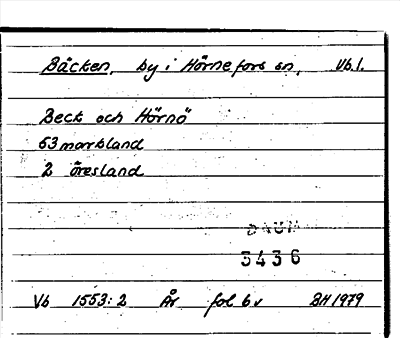 Bäcken, by i Hörnefors sn, Vb.l.
Beck och Hörnö
63 markland
2 öresland
DAUM
3436
Vb 1553:2 År fol 6 v BH 1979